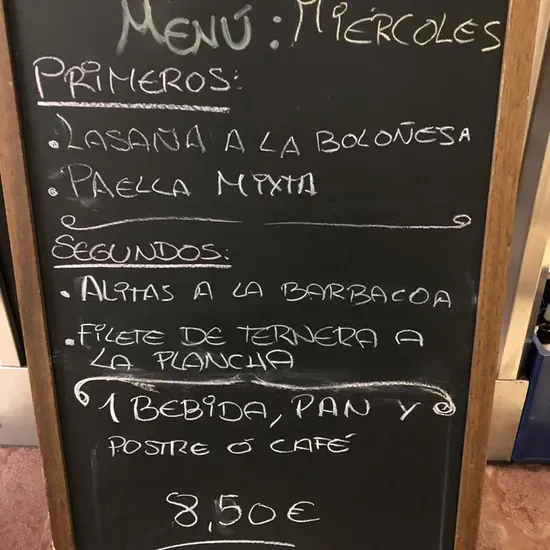 MENÚ: MIÉRCOLES
PRIMEROS:
• LASAÑA A LA BOLOÑESA
• PAELLA MIXTA
SEGUNDOS:
• ALITAS A LA BARBACOA
• FILETE DE TERNERA A
LA PLANCHA
1 BEBIDA, PAN Y
POSTRE Ó CAFÉ
8,50€